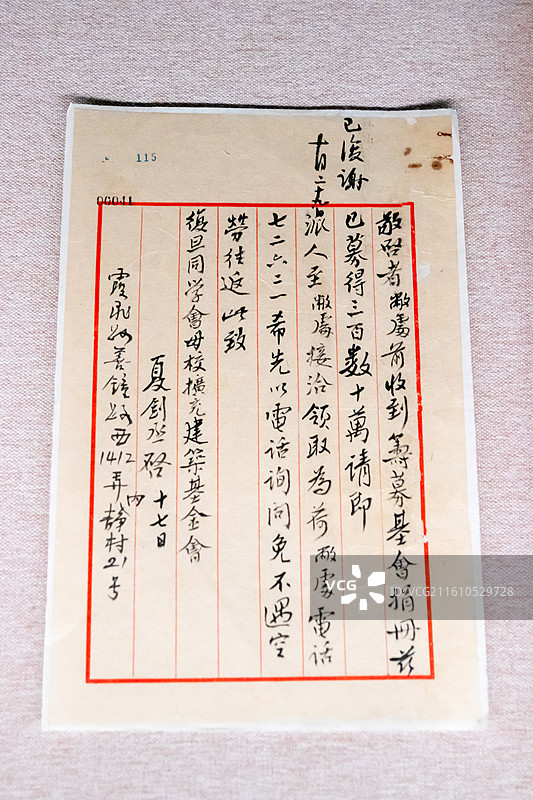 已復謝
十月二十九
敬啓者敝處前收到籌募基會捐冊茲
已募得三百數十萬請即
派人至敝處接洽領取為荷敝處電話
七二六二一希先以電話詢問免不遇空
勞往返此致
復旦同學會母校擴充建築基金會
夏劍丞啓 十七日
霞飛路善鐘路西1412弄內靜村21号
115
00041
VCG
ID:VCG211610529728